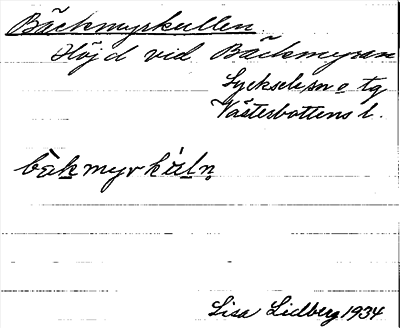 Bäckmyrkullen
Höjd vid Bäckmyran
Lycksele sn o tg
Västerbottens l.
Lisa Lidberg 1934